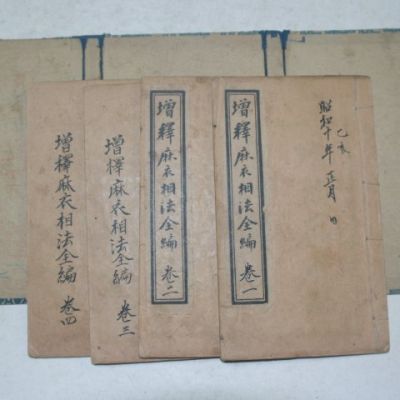 乙亥
昭和十年 正月 日
增釋麻衣相法全編 卷一
增釋麻衣相法全編 卷二
增釋麻衣相法全編 卷三
增釋麻衣相法全編 卷四